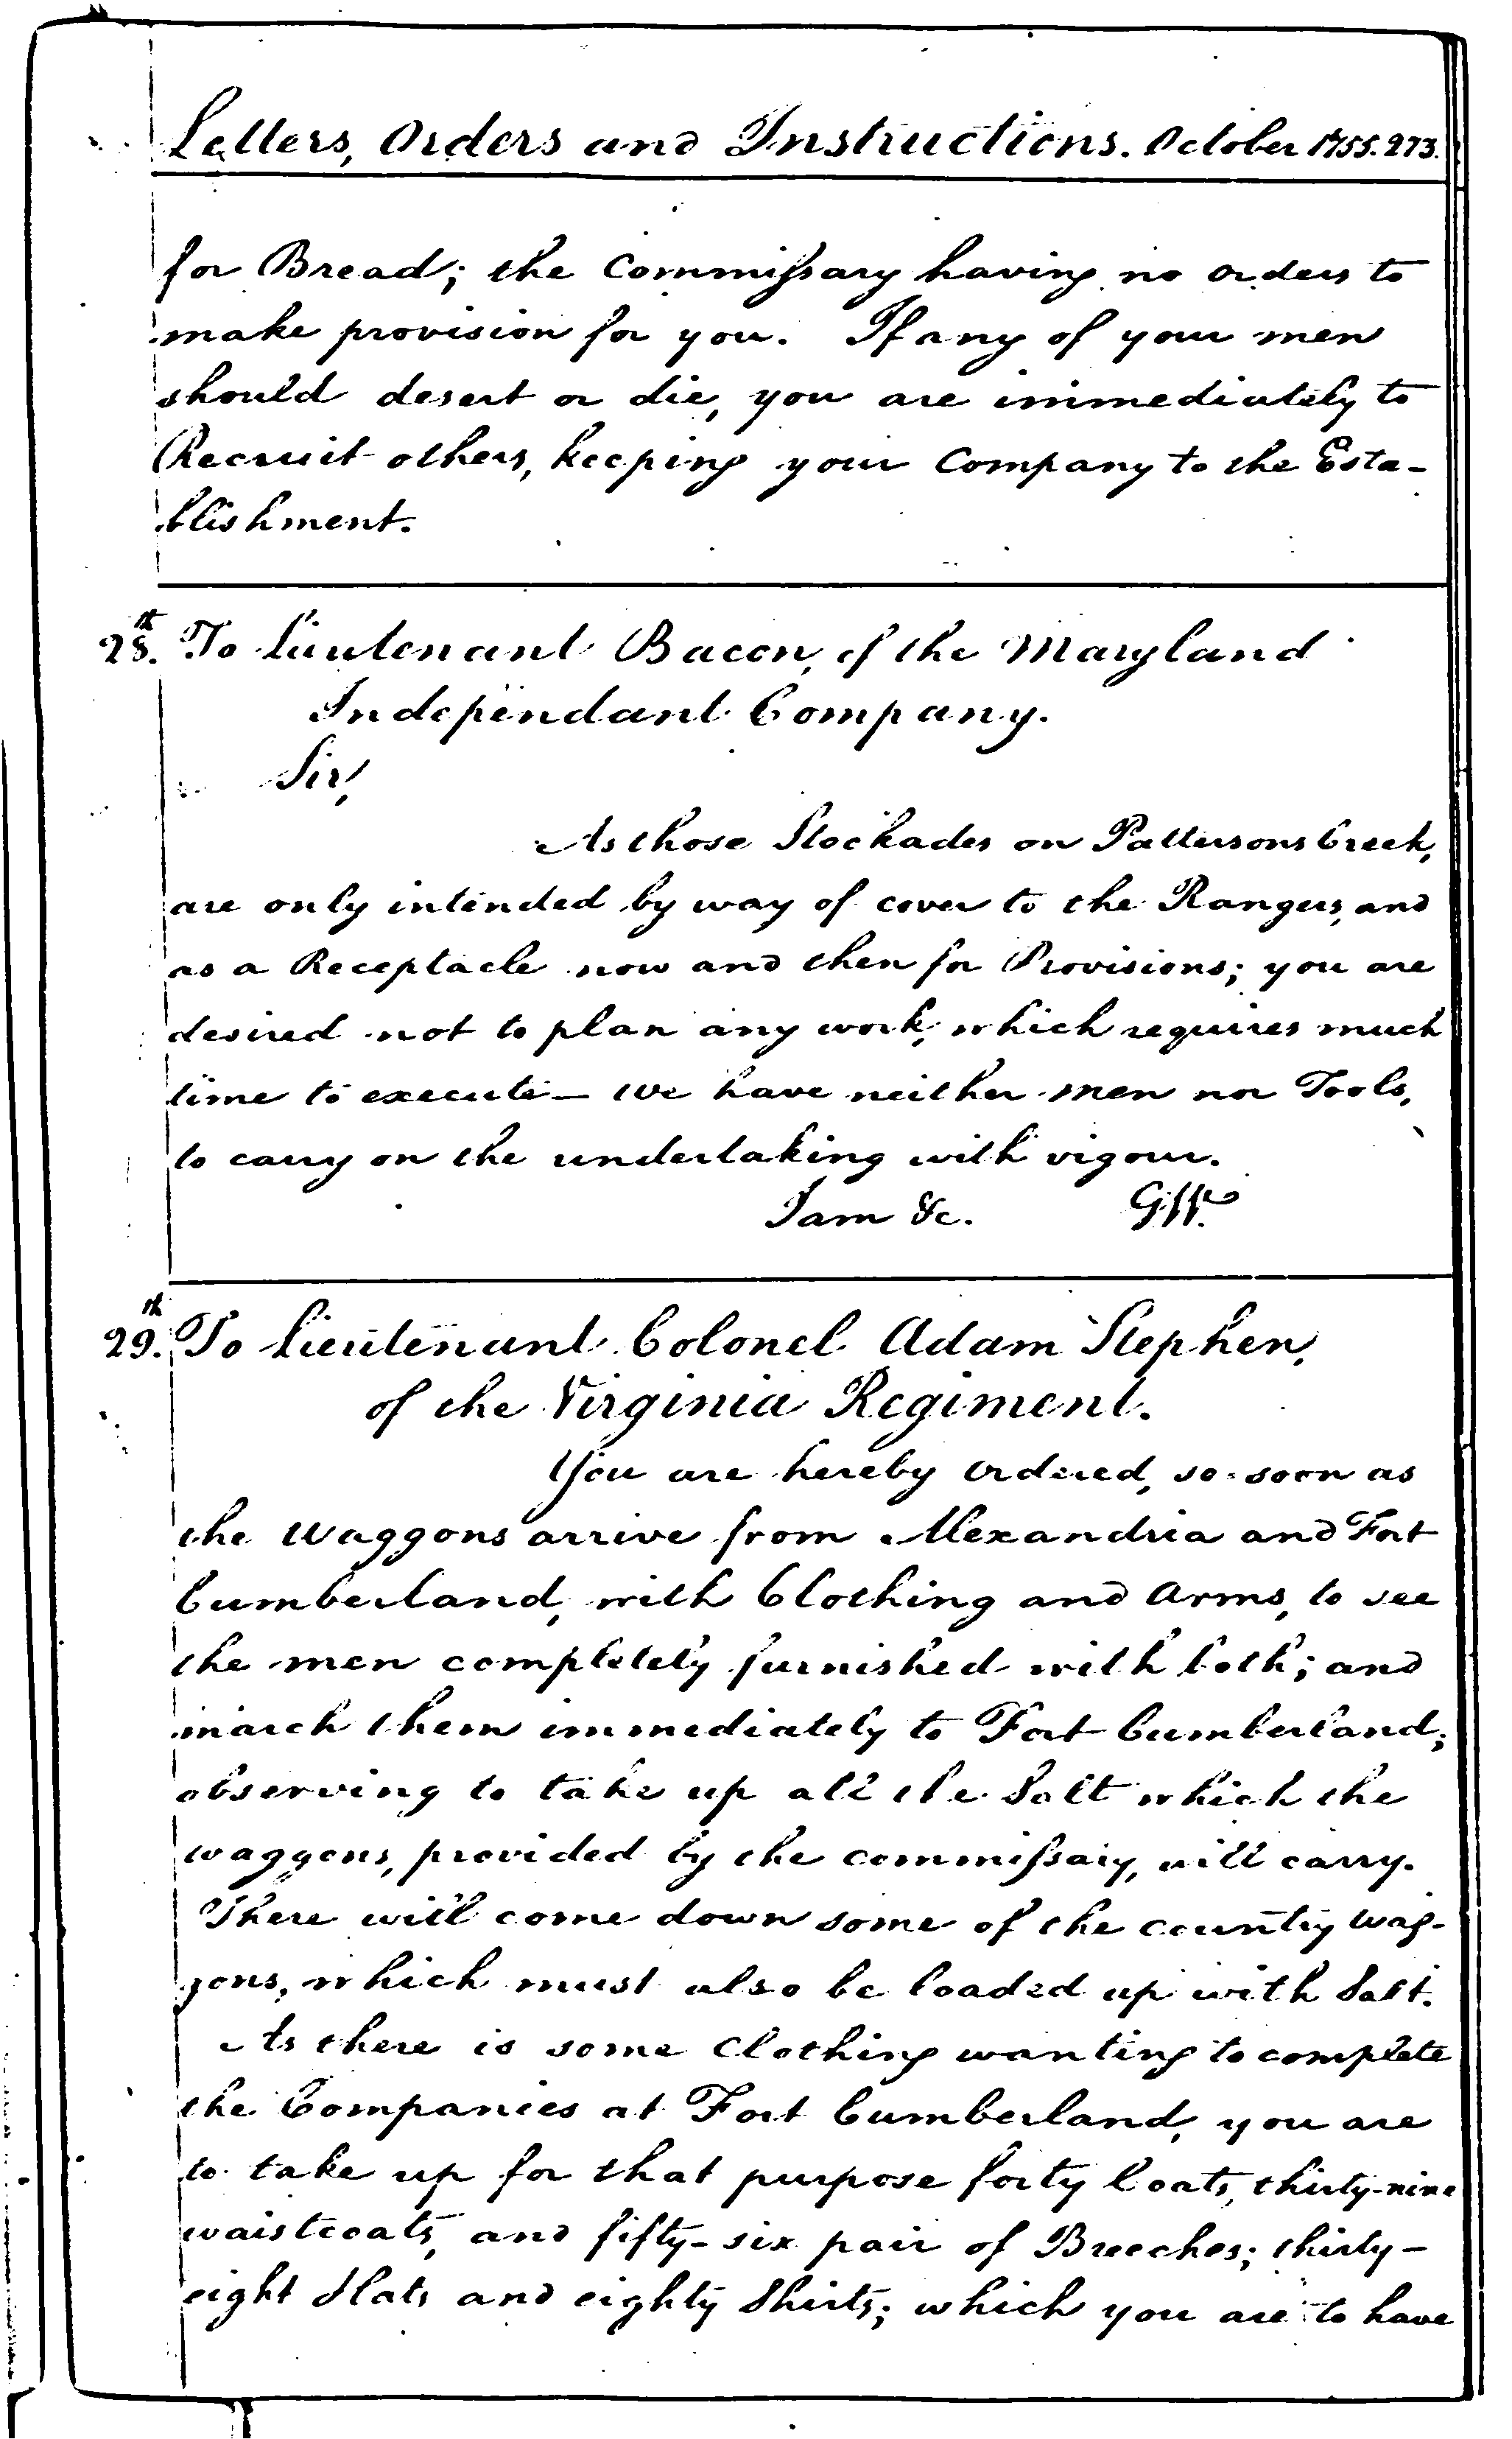 Letters, Orders and Instructions. October 1755. 273.
for Bread; the Commissary having no orders to
make provision for you. If any of your men
should desert or die, you are immediately to
Recruit others, keeping your Company to the Esta-
blishment.
28th. To Lieutenant Bacon, of the Maryland
Independant Company.
Sir,
As those Stockades on Pattersons Creek,
are only intended by way of cover to the Rangers, and
as a Receptacle now and then for Provisions; you are
desired not to plan any work, which requires much
time to execute — we have neither men nor Tools,
to carry on the undertaking with vigour.
I am &c. GW.
29th. To Lieutenant Colonel Adam Stephen,
of the Virginia Regiment.
You are hereby ordered, so soon as
the Waggons arrive from Alexandria and Fort
Cumberland, with Clothing and Arms, to see
the men completely furnished with both; and
march them immediately to Fort Cumberland;
observing to take up all the Salt which the
waggons, provided by the commissary, will carry.
There will come down some of the country wag-
gons, which must also be loaded up with Salt.
As there is some Clothing wanting to complete
the Companies at Fort Cumberland, you are
to take up for that purpose forty Coats, thirty-nine
waistcoats, and fifty-six pair of Breeches; thirty-
eight Hats and eighty Shirts; which you are to have